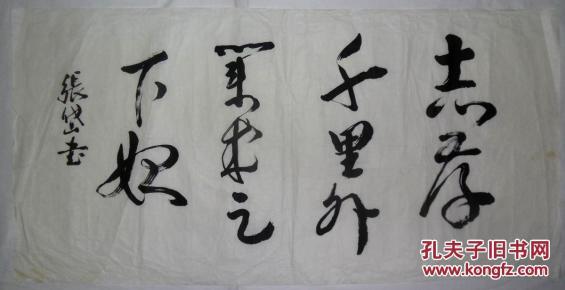 志存
千里外
業足
下始
張岱山书
孔夫子旧书网
www.kongfz.com